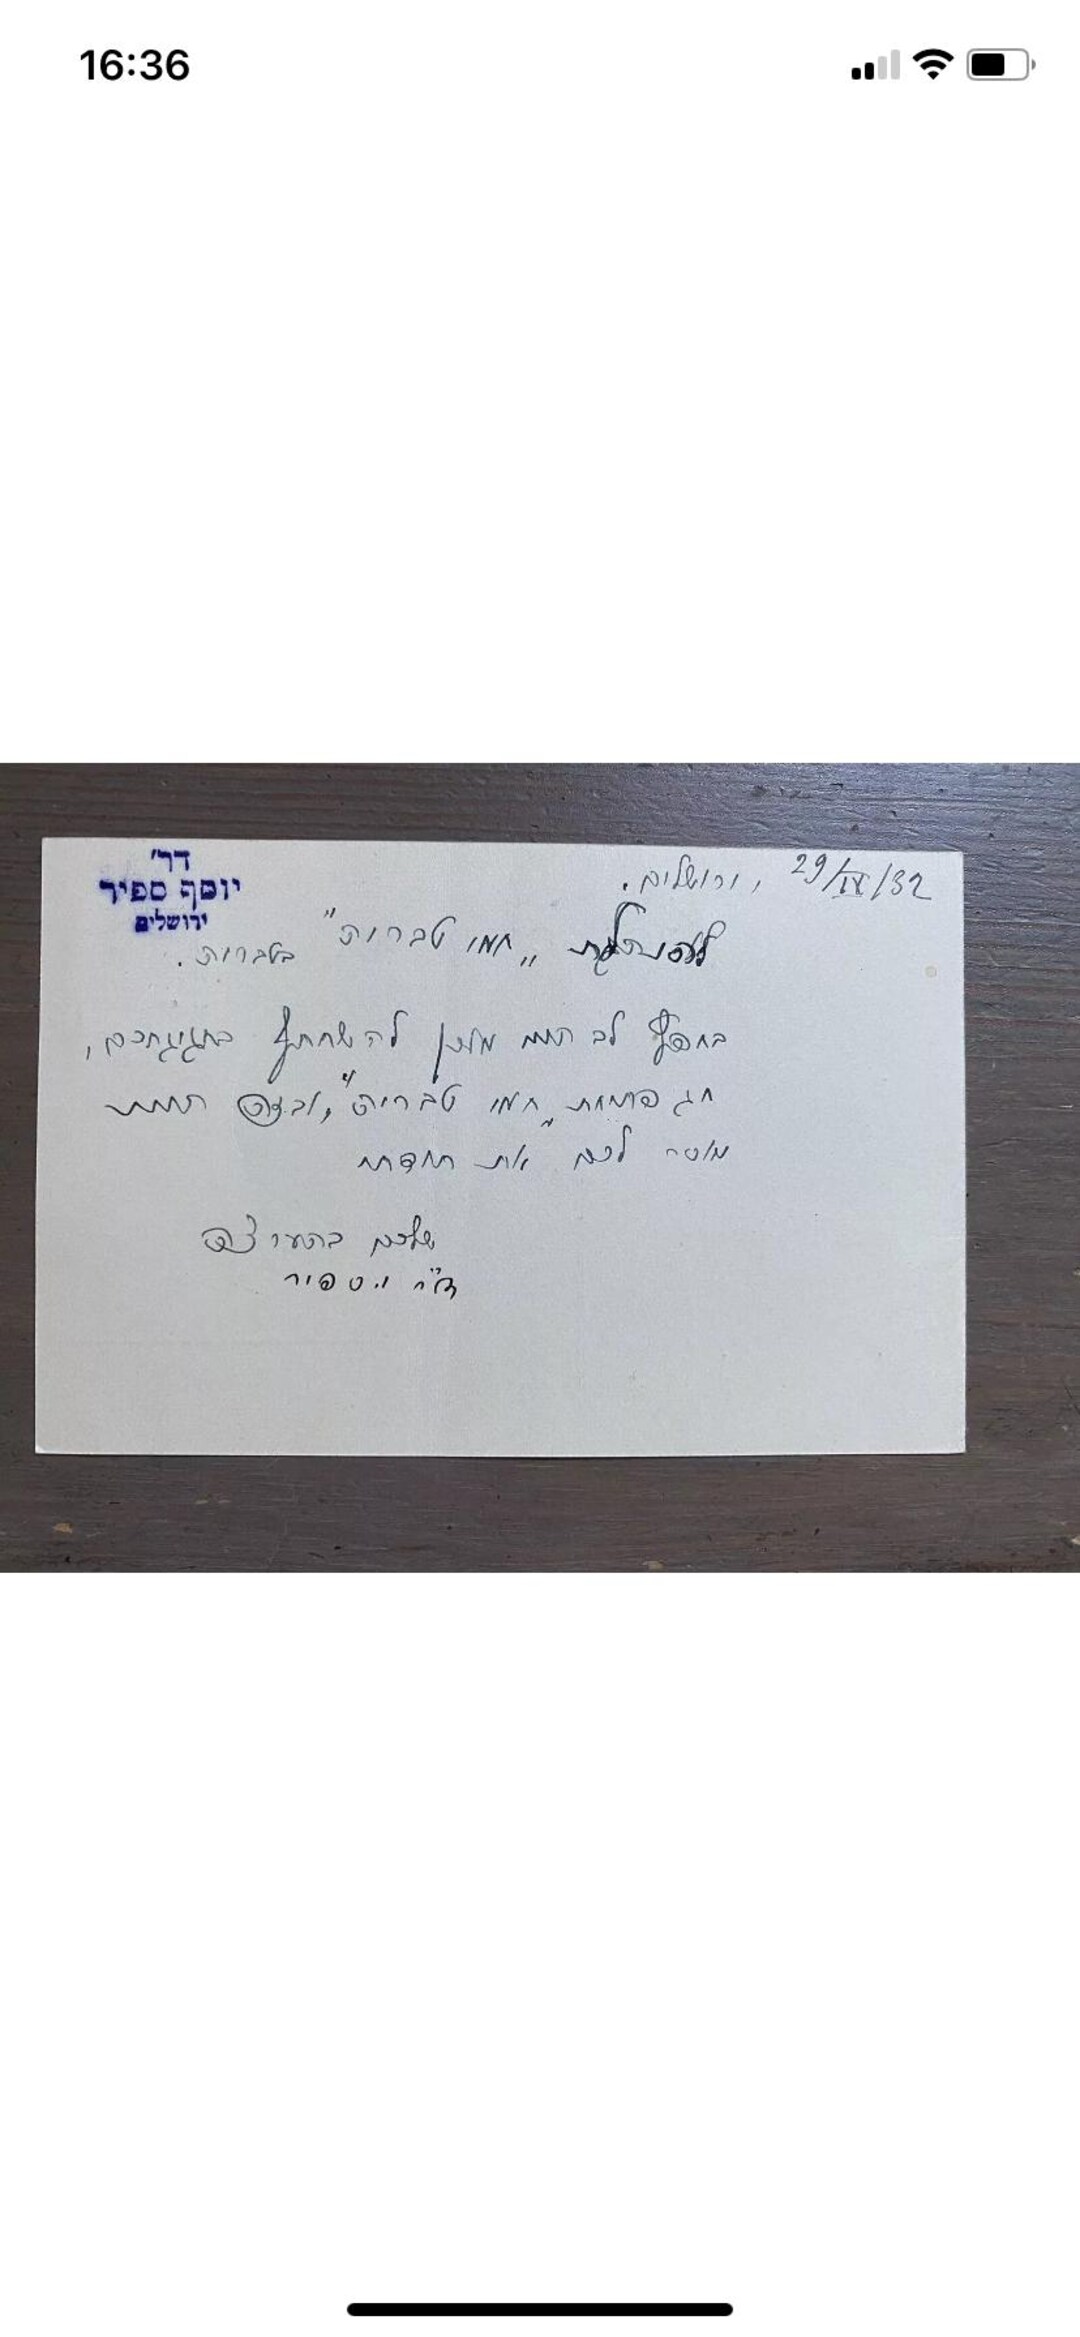 16:36
דר׳
יוסף ספיר
ירושלים
29/IX/32 , ירושלים.
„חמי טבריה" בטבריה.
בחפץ לב הנני מוכן להשתתף בחגיגתכם,
חג פתיחת „חמי טבריה", ובזה הנני
מוסר לכם את תודתי
שלכם בהערצה
ד"ר י. ספיר